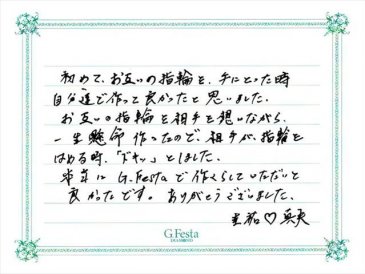 初めて、お互いの指輪を、手にとった時
自分達で作って良かったと思いました。
お互いの指輪を相手を想いながら、
一生懸命作ったので、相手が、指輪を
はめる時、「ドキッ」としました。
本当に G.Festaで作くらしていただいと
良かったです。ありがとうございました。
圭祐♡真美
G.Festa
DIAMOND